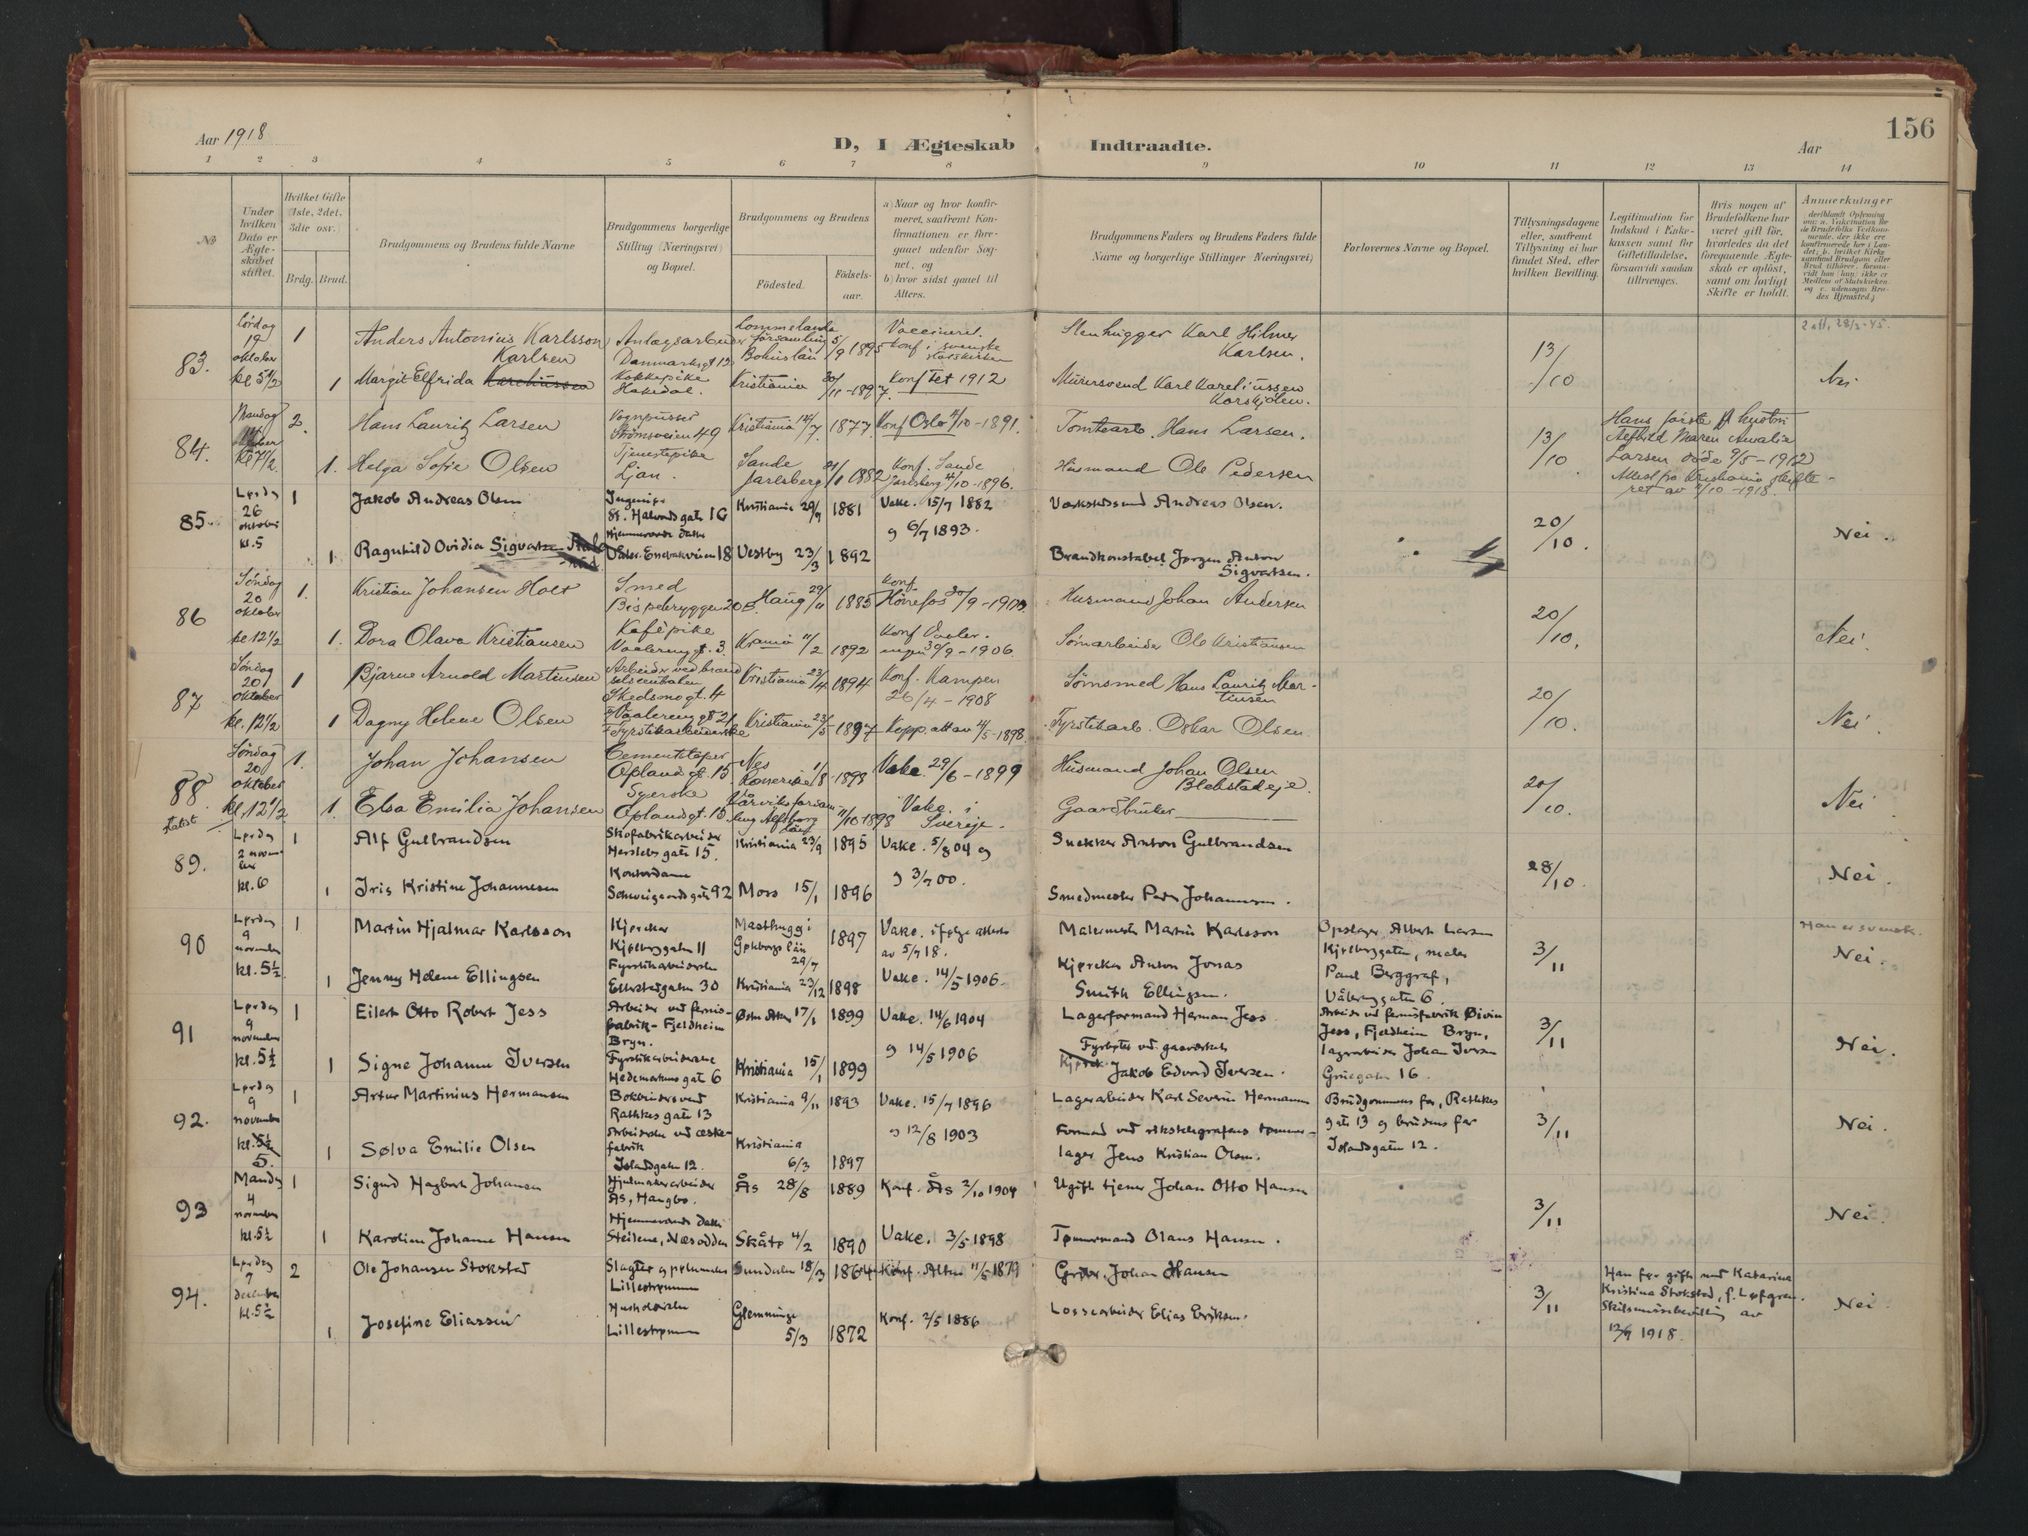 156
Aar 1918
D, I Ægteskab Indtraadte.
Aar
1 2 3 4 5 6 7 8 9 10 11 12 13 14
No
Under hvilken Dato er Ægteskabet stiftet.
Hvilket Gifte 1ste, 2det, 3die osv.
Brdg. Brud.
Brudgommens og Brudens fulde Navne
Brudgommens borgerlige Stilling (Næringsvei) og Bopæl.
Brudgommens og Brudens
Fødested.
Fødselsaar.
a) Naar og hvor konfirmeret, saafremt Konfirmationen er foregaaet udenfor Sognet, og
b) hvor sidst gaaet til Alters.
Brudgommens Faders og Brudens Faders fulde Navne og borgerlige Stillinger Næringsvei)
Forlovernes Navne og Bopæl.
Tillysningsdagene eller, saafremt Tillysning ei har fundet Sted, efter hvilken Bevilling.
Legitimation for Indskud i Enkekassen samt for Giftetilladelse, forsaavidt saadan tiltrænges.
Hvis nogen af Brudefolkene har været gift før, hvorledes da det foregaaende Ægteskab er opløst, samt om lovligt Skifte er holdt.
Anmerkninger
83. Lørdag 19 oktober kl 5 1/2
1 Anders Antonius Karlsson Karlsen
Anlægsarbeider Danmarksgt 12
Lommelanda församling Bohuslän 5/9 1895
Vaccineret. Konf i svenske statskirken
Stenhugger Karl Hilmer Karlsen.
13/10
1 Margit Elfrida Kareliussen
Kokkepike Hakedal.
Kristiania 30/11 - 1897
Konf Tet 1912
Murersvend Karl Kareliussen Korskjölen.
Nei
84. Mandag oktober kl 7 1/2.
2. Hans Lauritz Larsen
Vognpusser Strømsveien 49
Kristiania 14/7. 1877
Konf Oslo 4/10 - 1891.
Tomtearb. Hans Larsen.
13/10
Hans første hustru Aefhild Maren Amalia Larsen døde 9/5 - 1912
Attest fra Kristiania skifteret av 11/10 - 1918.
1. Helga Sofie Olsen
Tjenestepike Ljan.
Sande Jarlsberg 21/1 1882
Konf. Sande Jarlsberg 11/10 - 1896.
Husmand Ole Pedersen
85. Lørdag 26 oktober kl. 5
1 Jakob Andreas Olsen
Ingeniør St. Halvards gate 1G
Kristiania 29/7 1881
Vake. 15/7 1882
Verksteds Andreas Olsen.
20/10.
1 Ragnhild Ovidia Sigvartsen
Hjemmeværende datter Enebakveien 18
Vestby 23/3 1892
og 6/7 1893.
Brandkonstabel Jørgen Anton Sigvartsen.
Nei.
86 Søndag 20 oktober kl 12 1/2
1. Kristian Johansen Holt
Smed Bispebryggen 20B
Haug 29/11 1885
Konf Hönefos 30/9 - 1900.
Husmand Johan Andersen
20/10.
1. Dora Olava Kristiansen
Kafépike Vaalereng gt. 3
Krania 11/2 1892
Konf Vaalerengen 30/9 - 1906.
Tømarbeider Ole Kristiansen
Nei
87 Søndag 20 oktober kl. 12 1/2
1 Bjarne Arnold Martinsen
Arbeider ved brandselscentralen Skedsmogt. 4
Kristiania 23/4 1894
Konf. Kampen 26/4 - 1908
Sømsmed Hans Lauritz Martinsen
20/10.
1 Dagny Helene Olsen
Vaalereng gt 21 Fyrstikarbeiderske
Kristiania 23/5 - 1897
Kopp. att av 11/5 - 1898.
Fyrstikarb. Oskar Olsen.
Nei
88. Søndag 20 oktober kl. 12 1/2
1. Johan Johansen
Cementstøper Oplandgt. 15
Nes Romerike 1/8 - 1898
Vake. 29/6 - 1899
Husmand Johan Olsen Blekstadeje.
20/10.
1. Elsa Emilia Johansen
Syerske Oplandgt. 15
Alfsborg län 11/10 1898
Vake. i Sverige.
Gaardbruker
Nei
89. Lørdag 2 november kl. 6
1 Alf Gulbrandsen
Skofabrikarbeider Herslebs gate 15.
Kristiania 23/9 1895
Vake. 5/8 04 og
Snekker Anton Gulbrandsen
28/10.
1 Iris Kristine Johannesen
Kontordame Schweigaards gate 92
Moss 15/1 1896
og 3/7 00.
Smedmester Peder Johannesen.
Nei.
90 Lørdag 9 november kl. 5 1/2.
1 Martin Hjalmar Karlsson
Kjørekar Kjølberggaten 11
Masthugg i Gøteborgs län 29/7 1897
Vake. ifølge attest av 5/7 18.
Malermester Martin Karlsson
Opslager Albert Larsen Kjølberggaten, maler Paul Berggraf, Vålerenggaten 6.
3/11
Han er svensk.
Nei.
1 Jenny Helene Ellingsen
Fyrstikarbeiderske Etterstadgaten 30
Kristiania 23/12 1898
Vake. 14/5 1906.
Kjørekar Anton Jonas Smith Ellingsen.
91 Lørdag 9 november kl. 5 1/2
1 Eilert Otto Robert Jess
Arbeider ved fernisfabrik - Fjeldheim Bryn.
Østre Aker 17/1 1899
Vake. 14/6 1904
Lagerformand Herman Jess
Arbeider ved fernisfabrik Øivin Jess, Fjeldheim Bryn, lagerarbeider Johan Iversen Gruegaten 16.
3/11
1 Signe Johanne Iversen
Fyrstikarbeiderske Hedemarkens gate 6
Kristiania 15/1 1899
og 14/5 1906
Fyrbøter ved gasverket Jakob Edvard Iversen.
Nei.
92. Lørdag 9 november kl. 5 1/2 5.
1 Artur Martinius Hermansen
Bokbindersvend Rathkes gate 13
Kristiania 9/11 1893
Vake. 15/7 1896
Lagerarbeider Karl Severin Hermansen
Brudgommens far, Rathkes gate 13 og brudens far Jolandsgaten 12.
3/11
1 Sølva Emilie Olsen
Arbeiderske ved æskefabrik Jolandsgaten 12.
Kristiania 6/3 1897
og 12/8 1903
Formand ved rikstelegrafens tømmerlager Jens Kristian Olsen.
Nei.
93 Mandag 4 november kl. 5 1/2
1 Sigurd Hagbart Johansen
Hjulmakerarbeider Ås, Haugbo.
Ås 28/8 1889
Konf. Ås 2/10 1904
Ugift tjener Johan Otto Hansen
3/11
1 Karoline Johanne Hansen
Hjemmeværende datter Steilene, Nesodden
Skåtø 4/2 1890
Vake. 3/5 1898
Tømmermand Olaus Hansen.
Nei.
94. Lørdag 7 december kl. 5 1/2
2 Ole Johansen Stokstad
Slagter og pølsemaker Lillestrømmen
Sundalen 18/3 1864
Konf. Alten 11/5 1879
Johan Hansen
3/11
Han før gift med Katarina Kristina Stokstad, f. Løfgren. Skilsmissebevilling av 12/9 1918.
1 Josefine Eliassen
Husholderske Lillestrømmen
Glemminge 5/3 1872
Konf. 2/5 1886
Lossearbeider Elias Eriksen.
Nei